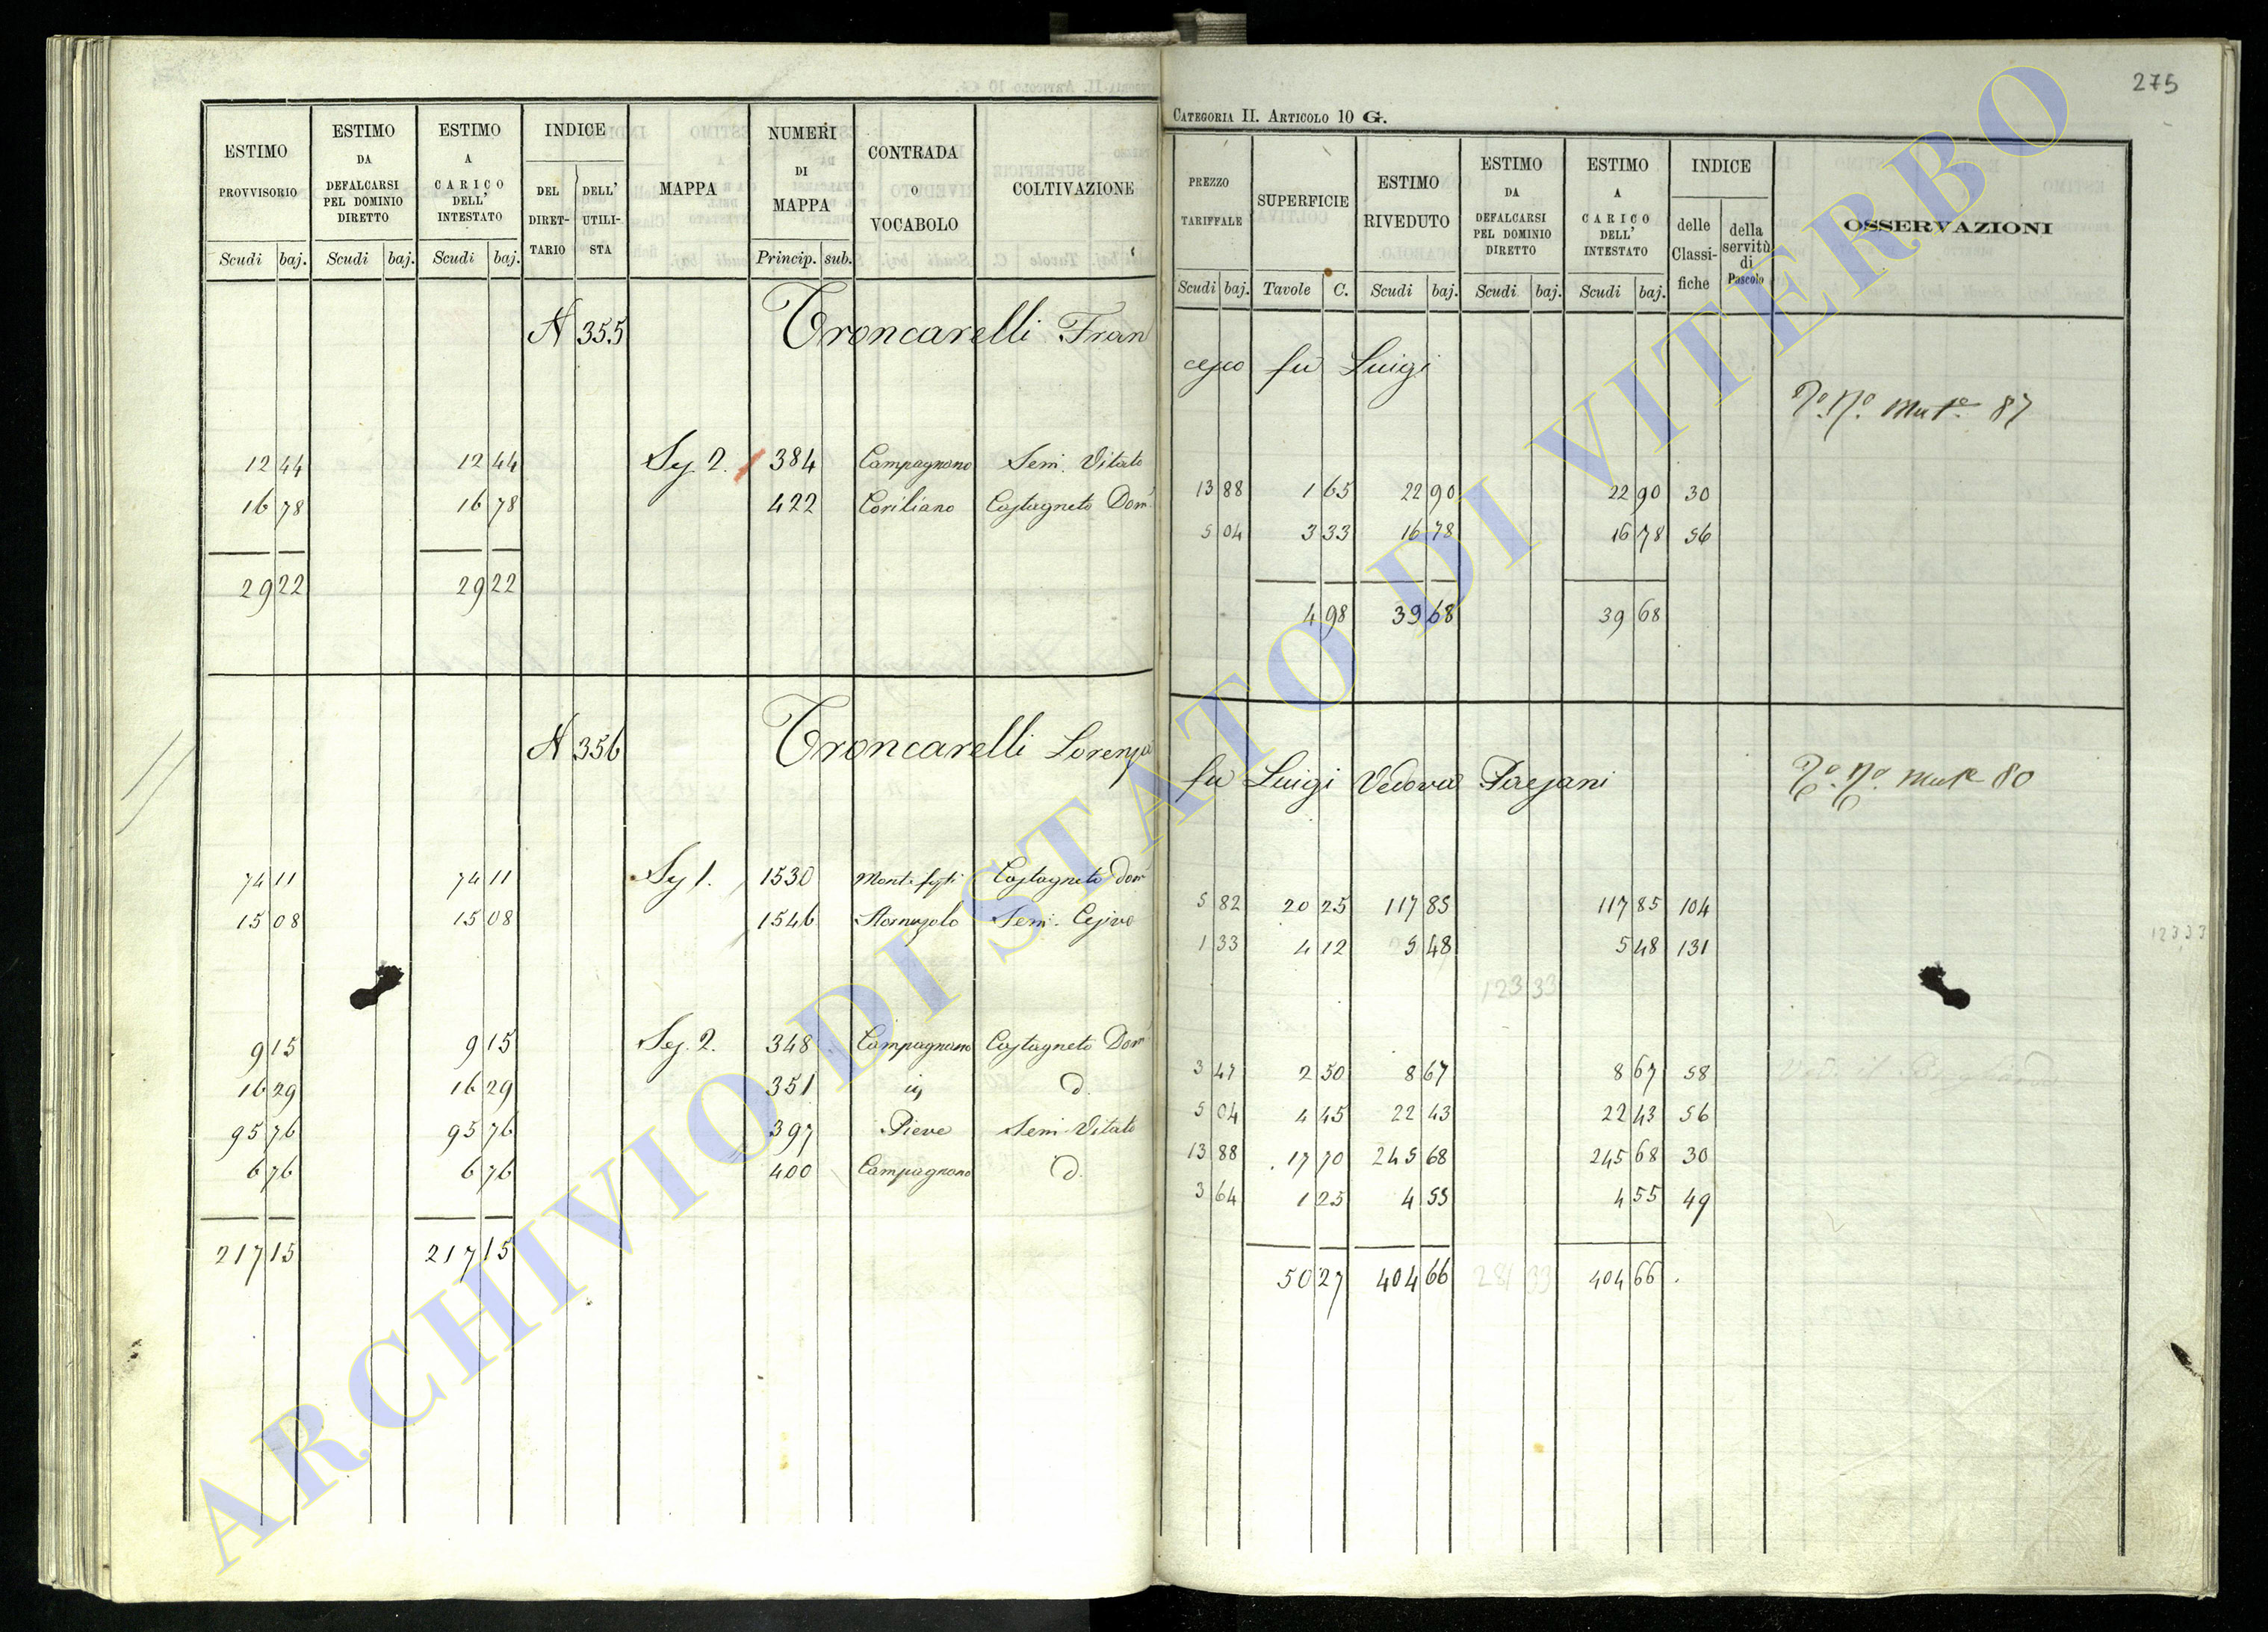 275
CATEGORIA II. ARTICOLO 10 G.
ESTIMO PROVVISORIO Scudi baj.
ESTIMO DA DEFALCARSI PEL DOMINIO DIRETTO Scudi baj.
ESTIMO A CARICO DELL' INTESTATO Scudi baj.
INDICE DEL DIRET-TARIO DELL' UTILI-STA
MAPPA
NUMERI DI MAPPA Princip. sub.
CONTRADA O VOCABOLO
COLTIVAZIONE
PREZZO TARIFFALE Scudi baj.
SUPERFICIE Tavole C.
ESTIMO RIVEDUTO Scudi baj.
ESTIMO DA DEFALCARSI PEL DOMINIO DIRETTO Scudi baj.
ESTIMO A CARICO DELL' INTESTATO Scudi baj.
INDICE delle Classi-fiche della servitù di Pascolo
OSSERVAZIONI
N 355 Troncarelli Fran
cesco fu Luigi
87
12 44 12 44 Sez. 2. 384 Campagnano Semi. Vitato 13 88 1 65 22 90 22 90 30
16 78 16 78 422 Coriliano Castagneto Dom. 5 04 3 33 16 78 16 78 56
29 22 29 22 4 98 39 68 39 68
N 356 Troncarelli Lorenza
fu Luigi Vedova
80
74 11 74 11 Sez 1. 1530 Castagneto dom 5 82 20 25 117 85 117 85 104
15 08 15 08 1546 Sem. Cesivo 1 33 4 12 5 48 5 48 131
123 33
123 33
9 15 9 15 Sez. 2. 348 Campagnano Castagneto Dom 3 47 2 50 8 67 8 67 58
16 29 16 29 351 d. 5 04 4 45 22 43 22 43 56
95 76 95 76 397 Pieve Semi Vitato 13 88 17 70 245 68 245 68 30
6 76 6 76 400 Campagnano d. 3 64 1 25 4 55 4 55 49
217 15 217 15 50 27 404 66 281 33 404 66
ARCHIVIO DI STATO DI VITERBO